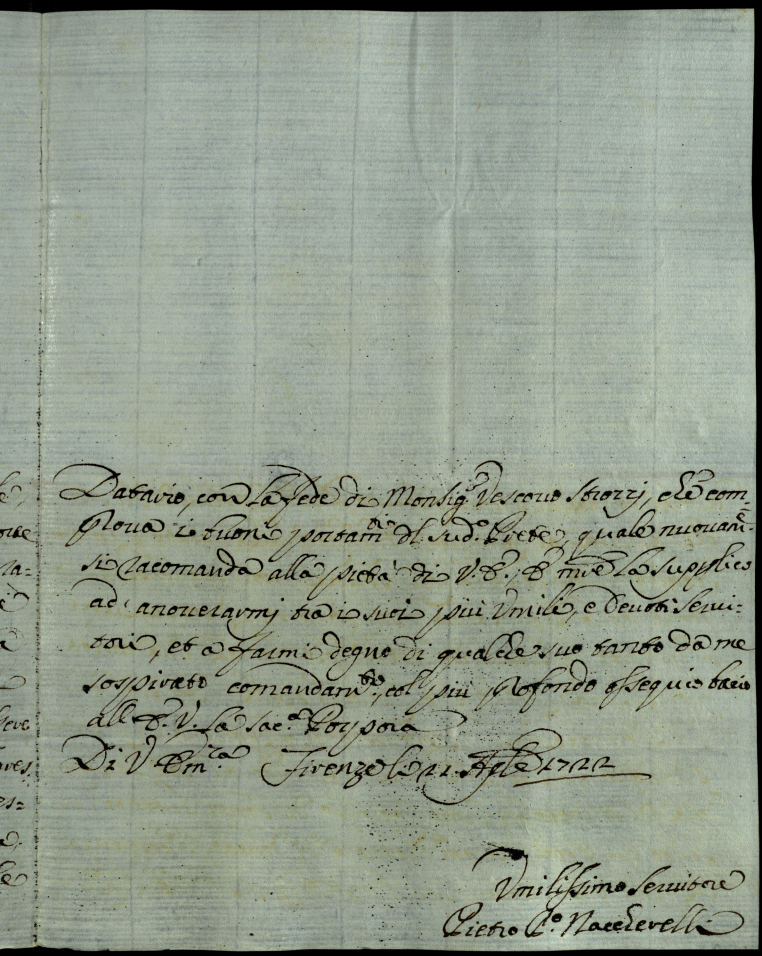 Datario, con la fede di Monsig.r Vescovo Strozzi, che com-
prova i buoni portam.ti del sud.o Prete, quale nuovam.te
si racomanda alla pietà di V.E., E m̃re la supplico
ad anoverarmi tra i suoi più Umili, e devoti servi-
tori, et a farmi degno di qualche suo tanto da me
sospirato comandam.to, col più profondo ossequio bacio
all'E.V. la sac.a Porpora
Di V. Em.za Firenze li 21. Aple 1722
Umilissimo Servitore
Pietro P.o Naccherelli
le
va:
è
a
eve
res
es=
a,
le